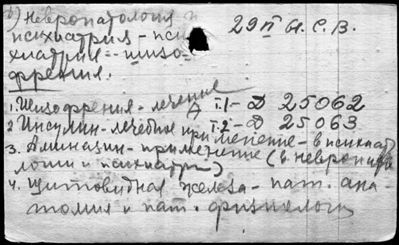 б) Невропатология и
психиатрия - пси
хиатрия - шизо-
френия.
29 П Н.С.В.
1. Шизофрения - лечение т.1 - Д 25062
2 Инсулин - лечебное применение т.2 - Д 25063
3. Аминазин - применение - в психиат
(в невропато
логии и психиатрии)
4. Щитовидная железа - пат. ана-
томия и пат. физиология